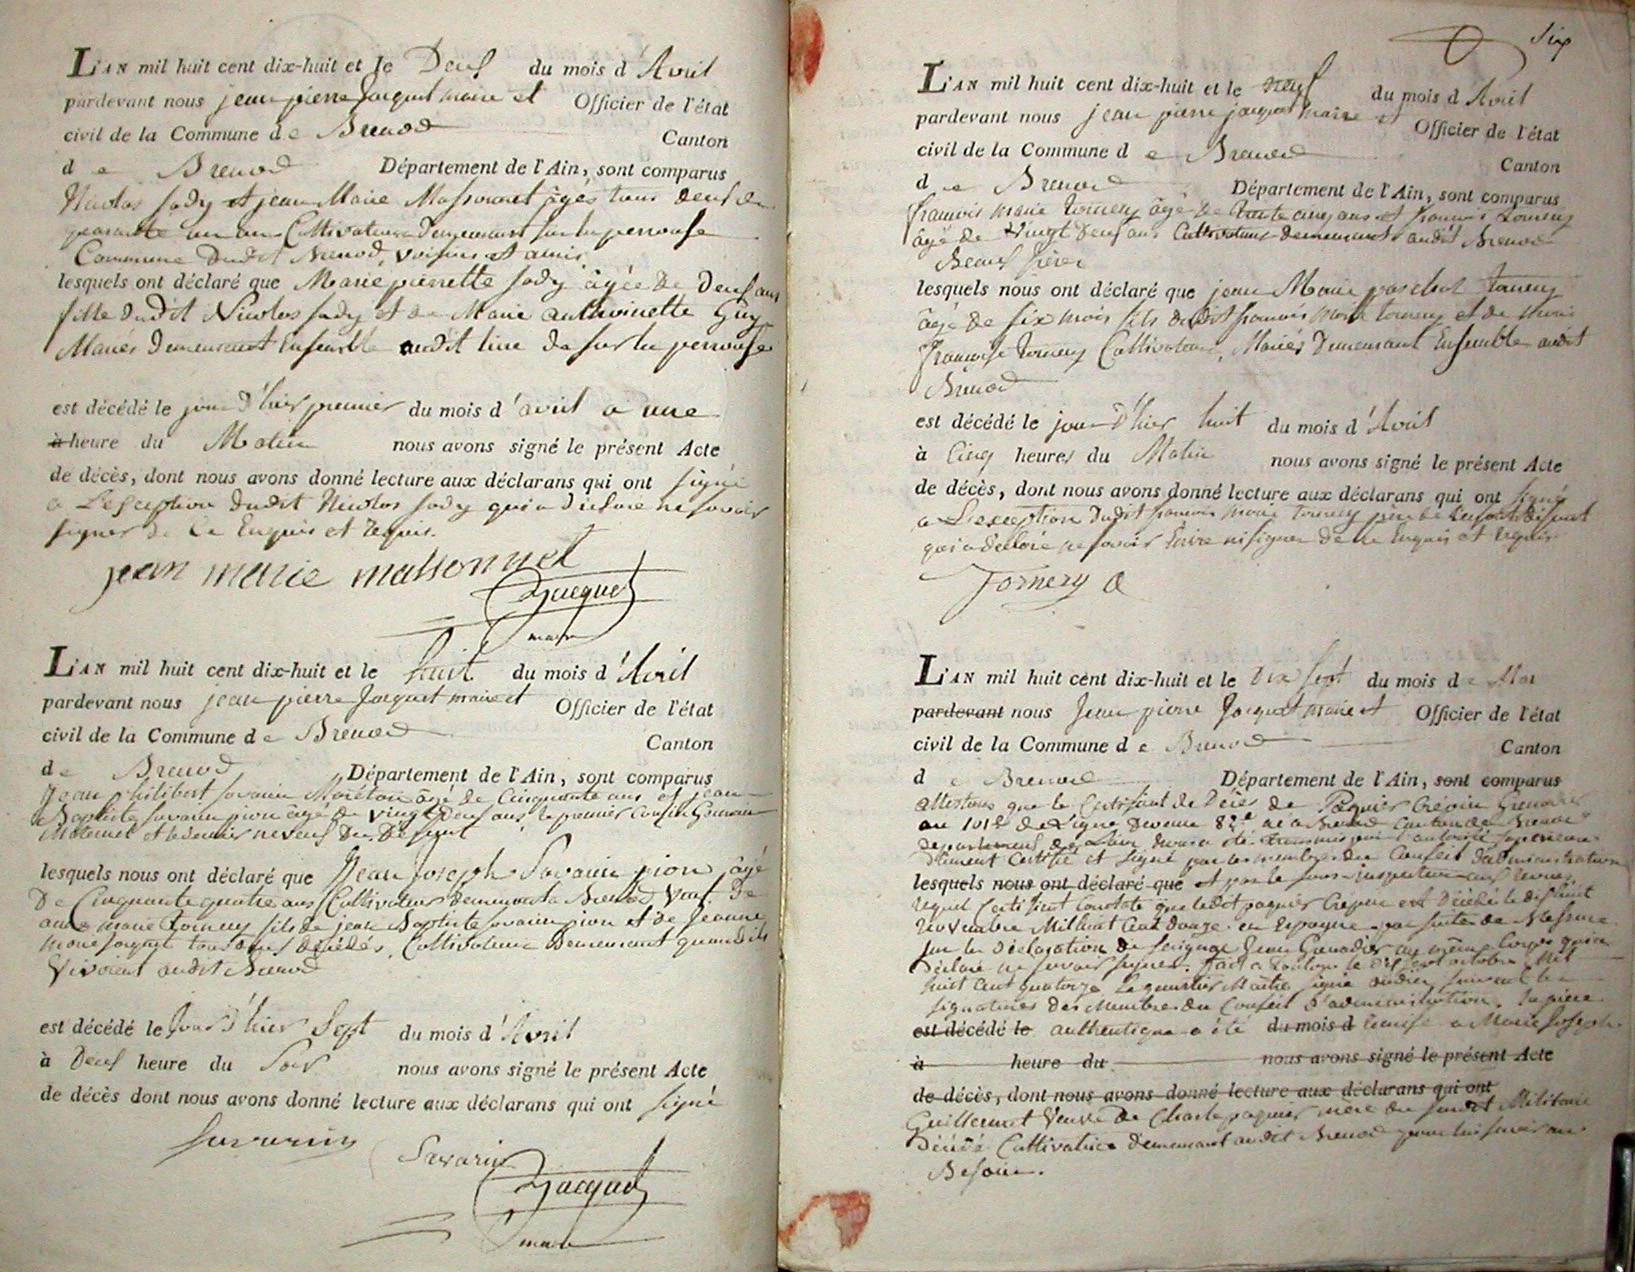 L'AN mil huit cent dix-huit et le Deux du mois d'Avril
pardevant nous jean pierre Jacquet maire et Officier de l'état
civil de la Commune de Brenod Canton
de Brenod Département de l'Ain, sont comparus
Nicolas Jady et jean Marie Massonnet âgés tous deux de
quarante un ans Cultivateurs Demeurant sur la perrouse
Commune Dudit Brenod, voisins et amis
lesquels ont déclaré que Marie pierrette Jady âgée De Deux ans
fille Dudit Nicolas Jady et de Marie anthoinette Guy
Mariés Demeurant Ensemble audit lieu De sur la perrouse
est décédé le jour d'hier premier du mois d'avril a une
à heure du Matin nous avons signé le présent Acte
de décès, dont nous avons donné lecture aux déclarans qui ont signé
a L'exception Dudit Nicolas Jady qui a declaré ne savoir
signer De Ce Enquis et Requis.
jean marie massonnet
Jacquet
maire
L'AN mil huit cent dix-huit et le huit du mois d'Avril
pardevant nous jean pierre Jacquet maire et Officier de l'état
civil de la Commune de Brenod Canton
de Brenod Département de l'Ain, sont comparus
Jean philibert Savarin Moréton âgé de Cinquante ans et jean
Baptiste Savarin pion âgé de vingt Deux ans le premier Cousin Germain
Maternel et le dernier neveux Du Defunt
lesquels nous ont déclaré que Jean Joseph Savarin pion âgé
De Cinquante quatre ans Cultivateur demeurant a Brenod Veuf De
anne marie Tornery fils de jean Baptiste Savarin pion et de Jeanne
Marie Jacquet tous deux décédés, Cultivateurs Demeurant quand ils
Vivoient audit Brenod
est décédé le Jour d'hier Sept du mois d'Avril
à Deux heure du Soir nous avons signé le présent Acte
de décès dont nous avons donné lecture aux déclarans qui ont signé
Savarin Savarin
Jacquet
maire
Six
L'AN mil huit cent dix-huit et le neuf du mois d Avril
pardevant nous jean pierre jacquet maire et Officier de l'état
civil de la Commune de Brenod Canton
de Brenod Département de l'Ain, sont comparus
francois marie Tornery âgé de trente cinq ans et francois Tornery
âgé de Vingt Deux ans Cultivateurs demeurants audit Brenod
Beaux freres
lesquels nous ont déclaré que jean Marie paschal Tornery
âgé de six mois fils dudit francois marie Tornery et de Marie
francoise Tornery Cultivateurs, Mariés Demeurant Ensemble audit
Brenod
est décédé le jour d'hier huit du mois d'Avril
à Cinq heures du Matin nous avons signé le présent Acte
de décès, dont nous avons donné lecture aux déclarans qui ont signé
a L'exception Dudit francois marie Tornery père de l'enfant défunt
qui a declaré ne savoir Ecrire ni signer De ce Enquis et Requis
Tornery
L'AN mil huit cent dix-huit et le dix sept du mois de Mai
pardevant nous Jean pierre Jacquet maire et Officier de l'état
civil de la Commune de Brenod Canton
de Brenod Département de l'Ain, sont comparus
attestons que le Certificat de Décès de Paquier Crepin Grenadier
au 101e de Ligne Devenu 82e né a Brenod Canton de Brenod
departement de l'ain nous a été transmis par l'autorité superieure
Dûment Certifié et signé par les membres du Conseil d'administration
lesquels nous ont déclaré que et par le sous-inspecteur aux revues
lequel Certificat constate que ledit paquier Crepin est Décédé le dix huit
Novembre Mil huit Cent Douze en Espagne par suites de blessure
sur la Déclaration de Jean Grenadier au même Corps qui a
Déclaré ne savoir signer. Fait a Toulon le dix sept octobre Mil
huit Cent quatorze Le quartier Maitre signé suivent les
signatures Des Membres du Conseil D'administration. la piece
est décédé le authentique a été du mois d remise a Marie Joseph
à heure du nous avons signé le présent Acte
de décès, dont nous avons donné lecture aux déclarans qui ont
Guillermet Veuve De Charle paquier mere du susdit Militaire
Décédé Cultivatrice Demeurant audit Brenod pour lui servir au
Besoin.